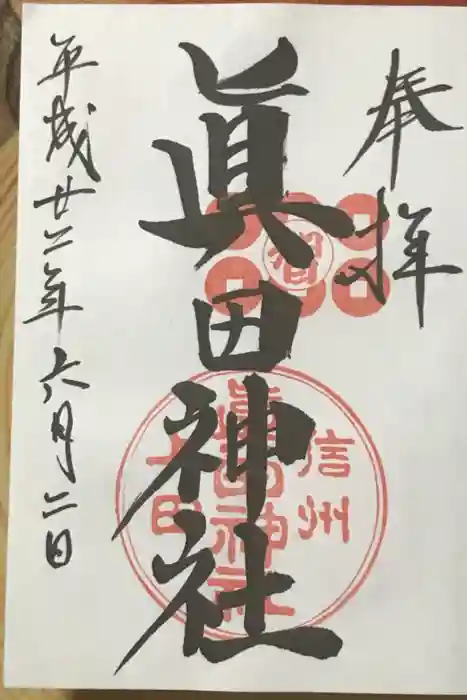 奉拝
眞田神社
信州
眞田神社
上田
平成廿二年六月二日